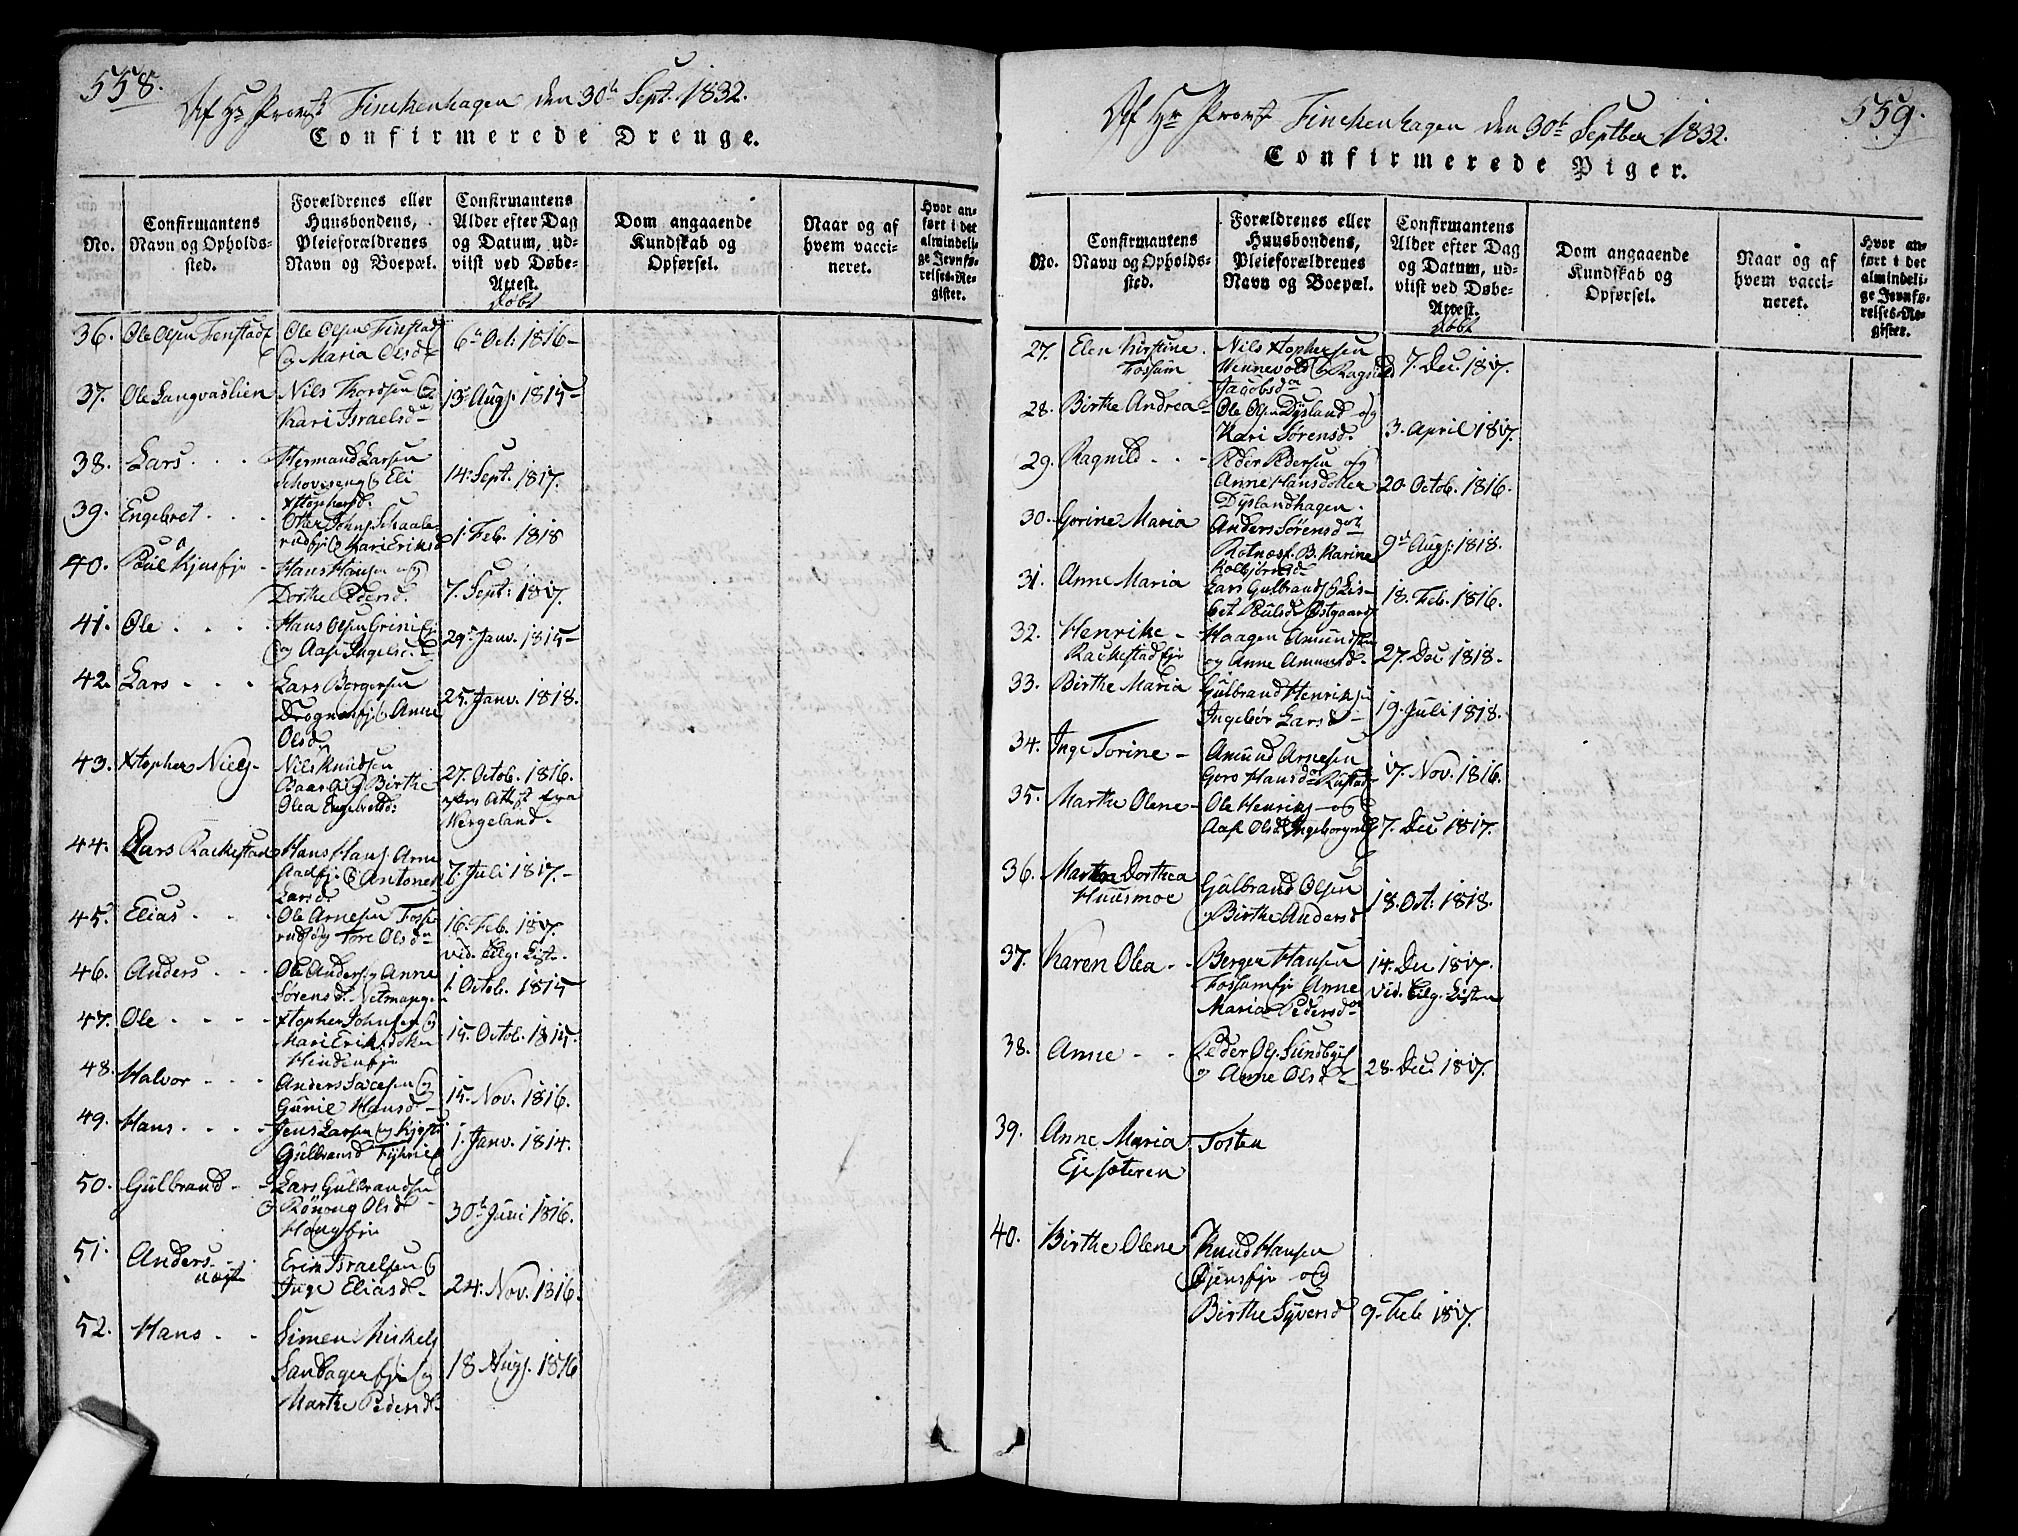 558.
Af Hr Provst Finckenhagen den 30t Sept. 1832.
Confirmerede Drenge.
No.
Confirmantens
Navn og Opholds-
sted.
Forældrenes eller
Huusbondens,
Pleieforældrenes
Navn og Boepæl.
Confirmantens
Alder efter Dag
og Datum, ud-
viist ved Døbe-
Attest.
døbt
Dom angaaende
Kundskab og
Opførsel.
Naar og af
hvem vacci-
neret.
Hvor an-
ført i det
almindeli-
ge Jevnfø-
relses-Re-
gister.
36. Ole Olsen Finstad
Ole Olsen Finstad
og Maria Olsd
6 Oct: 1816
37. Ole Langvaslien
Nils Thordsen og
Kari Israelsd
13 Aug. 1815
38. Lars
Hermand Larsen
Eli
Xstophersd.
14 Sept. 1817.
39. Engebret
Kari Eriksd
1 Feb. 1818
40. Poul
Hans Hansen og
Dorthe Pedersd.
7. Sept: 1817.
41. Ole
Hans Olsen Grini
og
29 Janv. 1815
42. Lars
Lars Borgersen
Anne
Olsd
25. Janv. 1818.
43. Xstopher Niels
Nils Knudsen
Birthe
Olea Engebretsd:
27. Octob. 1816.
efter Attest fra
Wergeland.
44. Lars Rackestad
Hans Hans.
og Antonet
Larsd.
7. Juli 1817.
45. Elias
Ole Arnesen
og Tore Olsd
16 Feb. 1817.
vid.
46. Anders
Ole Anders og Anne
Sørensd.
1. Octob. 1815
47. Ole
Xstopher Johnsen og
Mari Eriksdotter
15. Octob. 1815.
48. Halvor
Anders og
Gunil Hansd
15. Nov. 1816.
49. Hans
Jens Larsen og
Gulbransd
1. Janv. 1814.
50. Gulbrand
Lars Gulbrandsen
og Rønnoug Olsd
30t Juni 1816.
51. Anders
Erik Israelsen og
Inge Eliasd
24. Nov. 1816.
52. Hans
Simen
og
Marthe Pedersd
18 Aug. 1816
559.
Af Hr Provst Finckenhagen den 30t Septber 1832.
Confirmerede Piger.
No.
Confirmantens
Navn og Opholds-
sted.
Forældrenes eller
Huusbondens,
Pleieforældrenes
Navn og Boepæl.
Confirmantens
Alder efter Dag
og Datum, ud-
viist ved Døbe-
Attest.
døbt
Dom angaaende
Kundskab og
Opførsel.
Naar og af
hvem vacci-
neret.
Hvor an-
ført i det
almindeli-
ge Jevnfø-
relses-Re-
gister.
27. Elen Kirstine
Fossum
Nils Xstophersen
og Ragnild
Jacobsd
7. Dec. 1817.
28. Birthe Andrea
Ole Olsen Dysland og
Kari Sørensd.
3. April 1817.
29. Ragnild
Peder Pedersen og
Anne Hansdotter
Dyslandhagen.
20 Octob. 1816.
30. Gorine Maria
Anders Sørensd
B. Karine
9 Aug. 1818.
31. Anne Maria
Lars Gulbrands og Lis-
bet Poulsd Østgaard
18. Feb. 1816.
32. Henrike
Rackestad
Haagen Amundsen
og Anne Amundsd
27. Dec 1818.
33. Birthe Maria
Gulbrand Henriks
Ingebor Larsd
19. Juli 1818.
34. Inge Torine
Amund Arnesen
Goro Hansd Rustad
17. Nov. 1816.
35. Marthe Olene
Ole Henriks og
Olsd
7. Dec 1817.
36. Marthe Dorthea
Huusmoe
Gulbrand Olsen
og Birthe Andersd
18. Oct: 1818.
37. Karen Olea
Berger Hansen
Anne
Maria Pedersd
14. Dec 1817.
vid. Listen
38. Anne
Peder Ols.
og Anne Olsd
28. Dec. 1817.
39. Anne Maria
Ejesæteren
Tosten
40. Birthe Olene
Knud Hansen
og
Birthe Syversd
9. Feb 1817.